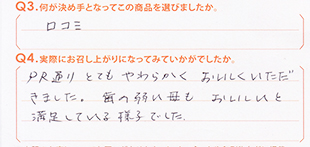 Q3.何が決め手となってこの商品を選びましたか。
口コミ
Q4.実際にお召し上がりになってみていかがでしたか。
PR通り とても やわらかく おいしくいただ
きました。歯の弱い母も おいしいと
満足している様子でした。